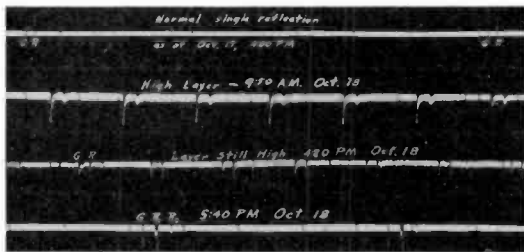 Normal single reflection
G R as of Oct. 17, 400 PM G R
High Layer - 950 A.M. Oct. 18
G R Layer Still High 420 PM Oct. 18
G R R. 5:40 PM Oct 18